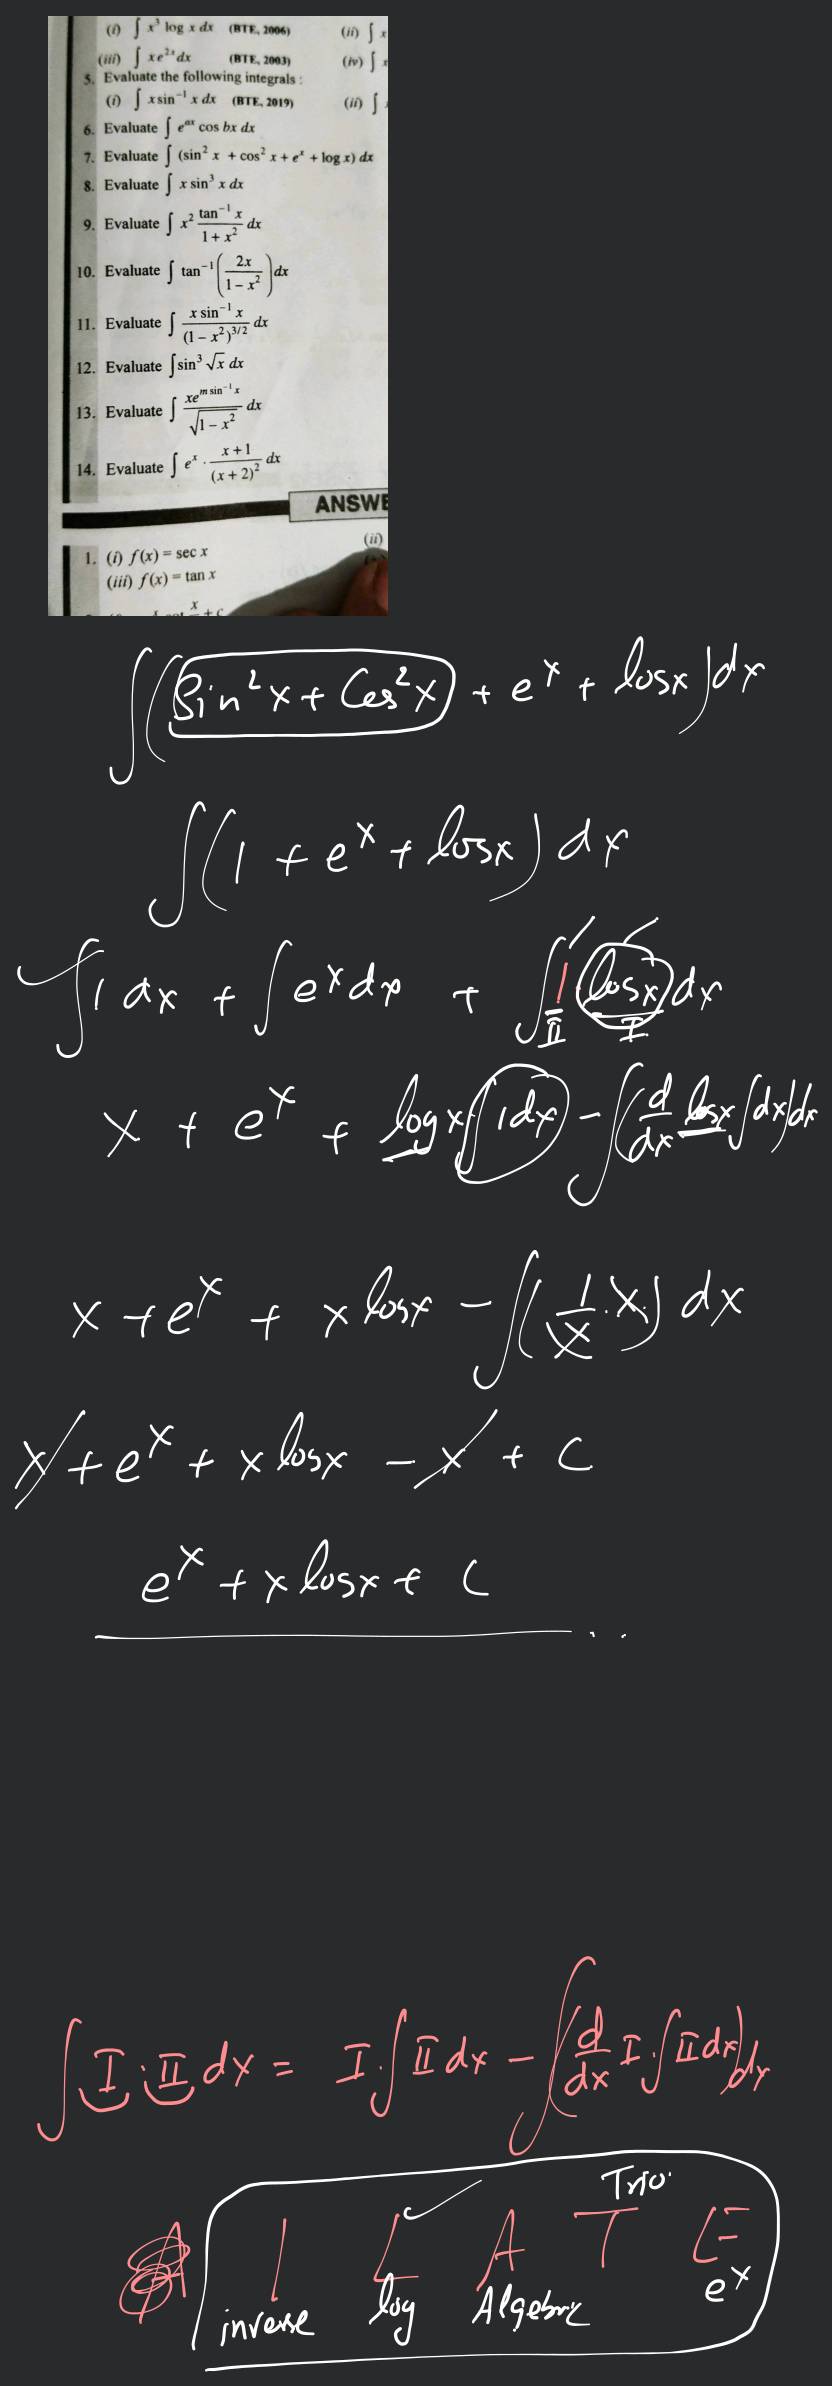 (i) ∫ x³ log x dx (BTE, 2006) (ii) ∫ x
(iii) ∫ xe²ˣ dx (BTE, 2003) (iv) ∫
5. Evaluate the following integrals :
(i) ∫ x sin⁻¹ x dx (BTE, 2019) (ii) ∫
6. Evaluate ∫ eᵃˣ cos bx dx
7. Evaluate ∫ (sin² x + cos² x + eˣ + log x) dx
8. Evaluate ∫ x sin³ x dx
9. Evaluate ∫ x² tan⁻¹ x / (1 + x²) dx
10. Evaluate ∫ tan⁻¹ (2x / (1 − x²)) dx
11. Evaluate ∫ x sin⁻¹ x / (1 − x²)^(3/2) dx
12. Evaluate ∫ sin³ √x dx
13. Evaluate ∫ xe^(m sin⁻¹ x) / √(1 − x²) dx
14. Evaluate ∫ eˣ · (x + 1) / (x + 2)² dx
ANSWE
1. (i) f(x) = sec x (ii)
(iii) f(x) = tan x
∫(Sin²x + Cos²x + eˣ + logx)dx
∫(1 + eˣ + logx) dx
∫1 dx + ∫eˣdx + ∫1·(logx)dx
II I
x + eˣ + logx∫1dx − ∫(d/dx logx∫dx)dx
x + eˣ + x logx − ∫(1/x · x) dx
x + eˣ + x logx − x + c
eˣ + x logx + c
∫ I · II dx = I·∫II dx − ∫(d/dx I·∫II dx)dx
Trio.
I L A T E
inverse log Algebric eˣ